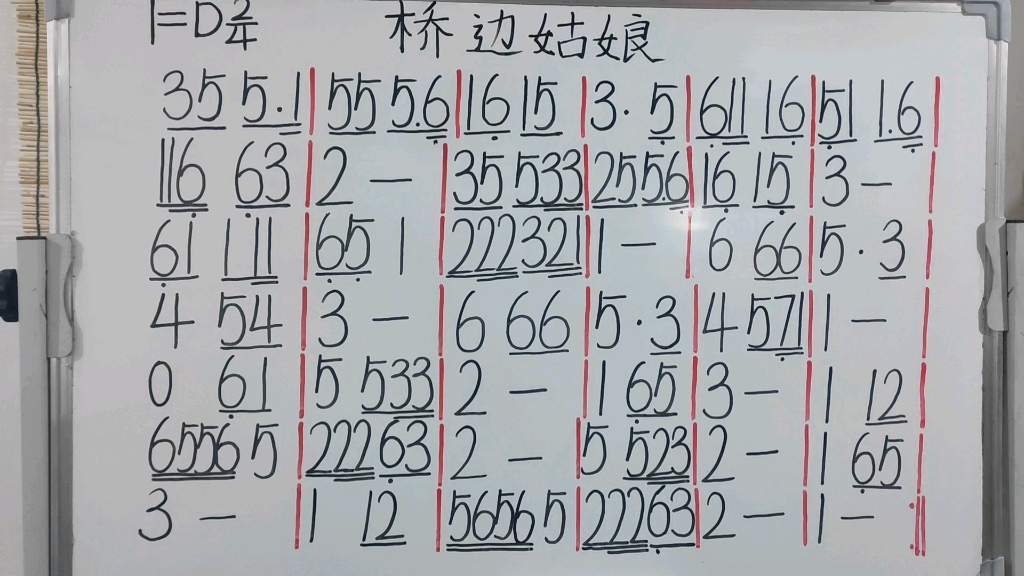 1=D 2/4 桥边姑娘
35 5.1 | 55 5.6 | 16 15 | 3. 5 | 611 16 | 51 1.6 |
116 63 | 2 — | 35 533 | 2556 | 16 15 | 3 — |
61 111 | 65 1 | 222321 | 1 — | 6 66 | 5.3 |
4 54 | 3 — | 6 66 | 5.3 | 4 571 | 1 — |
0 61 | 5 533 | 2 — | 1 65 | 3 — | 1 12 |
6556 5 | 222 63 | 2 — | 5 523 | 2 — | 1 65 |
3 — | 1 12 | 5656 5 | 22263 | 2 — | 1 — :||